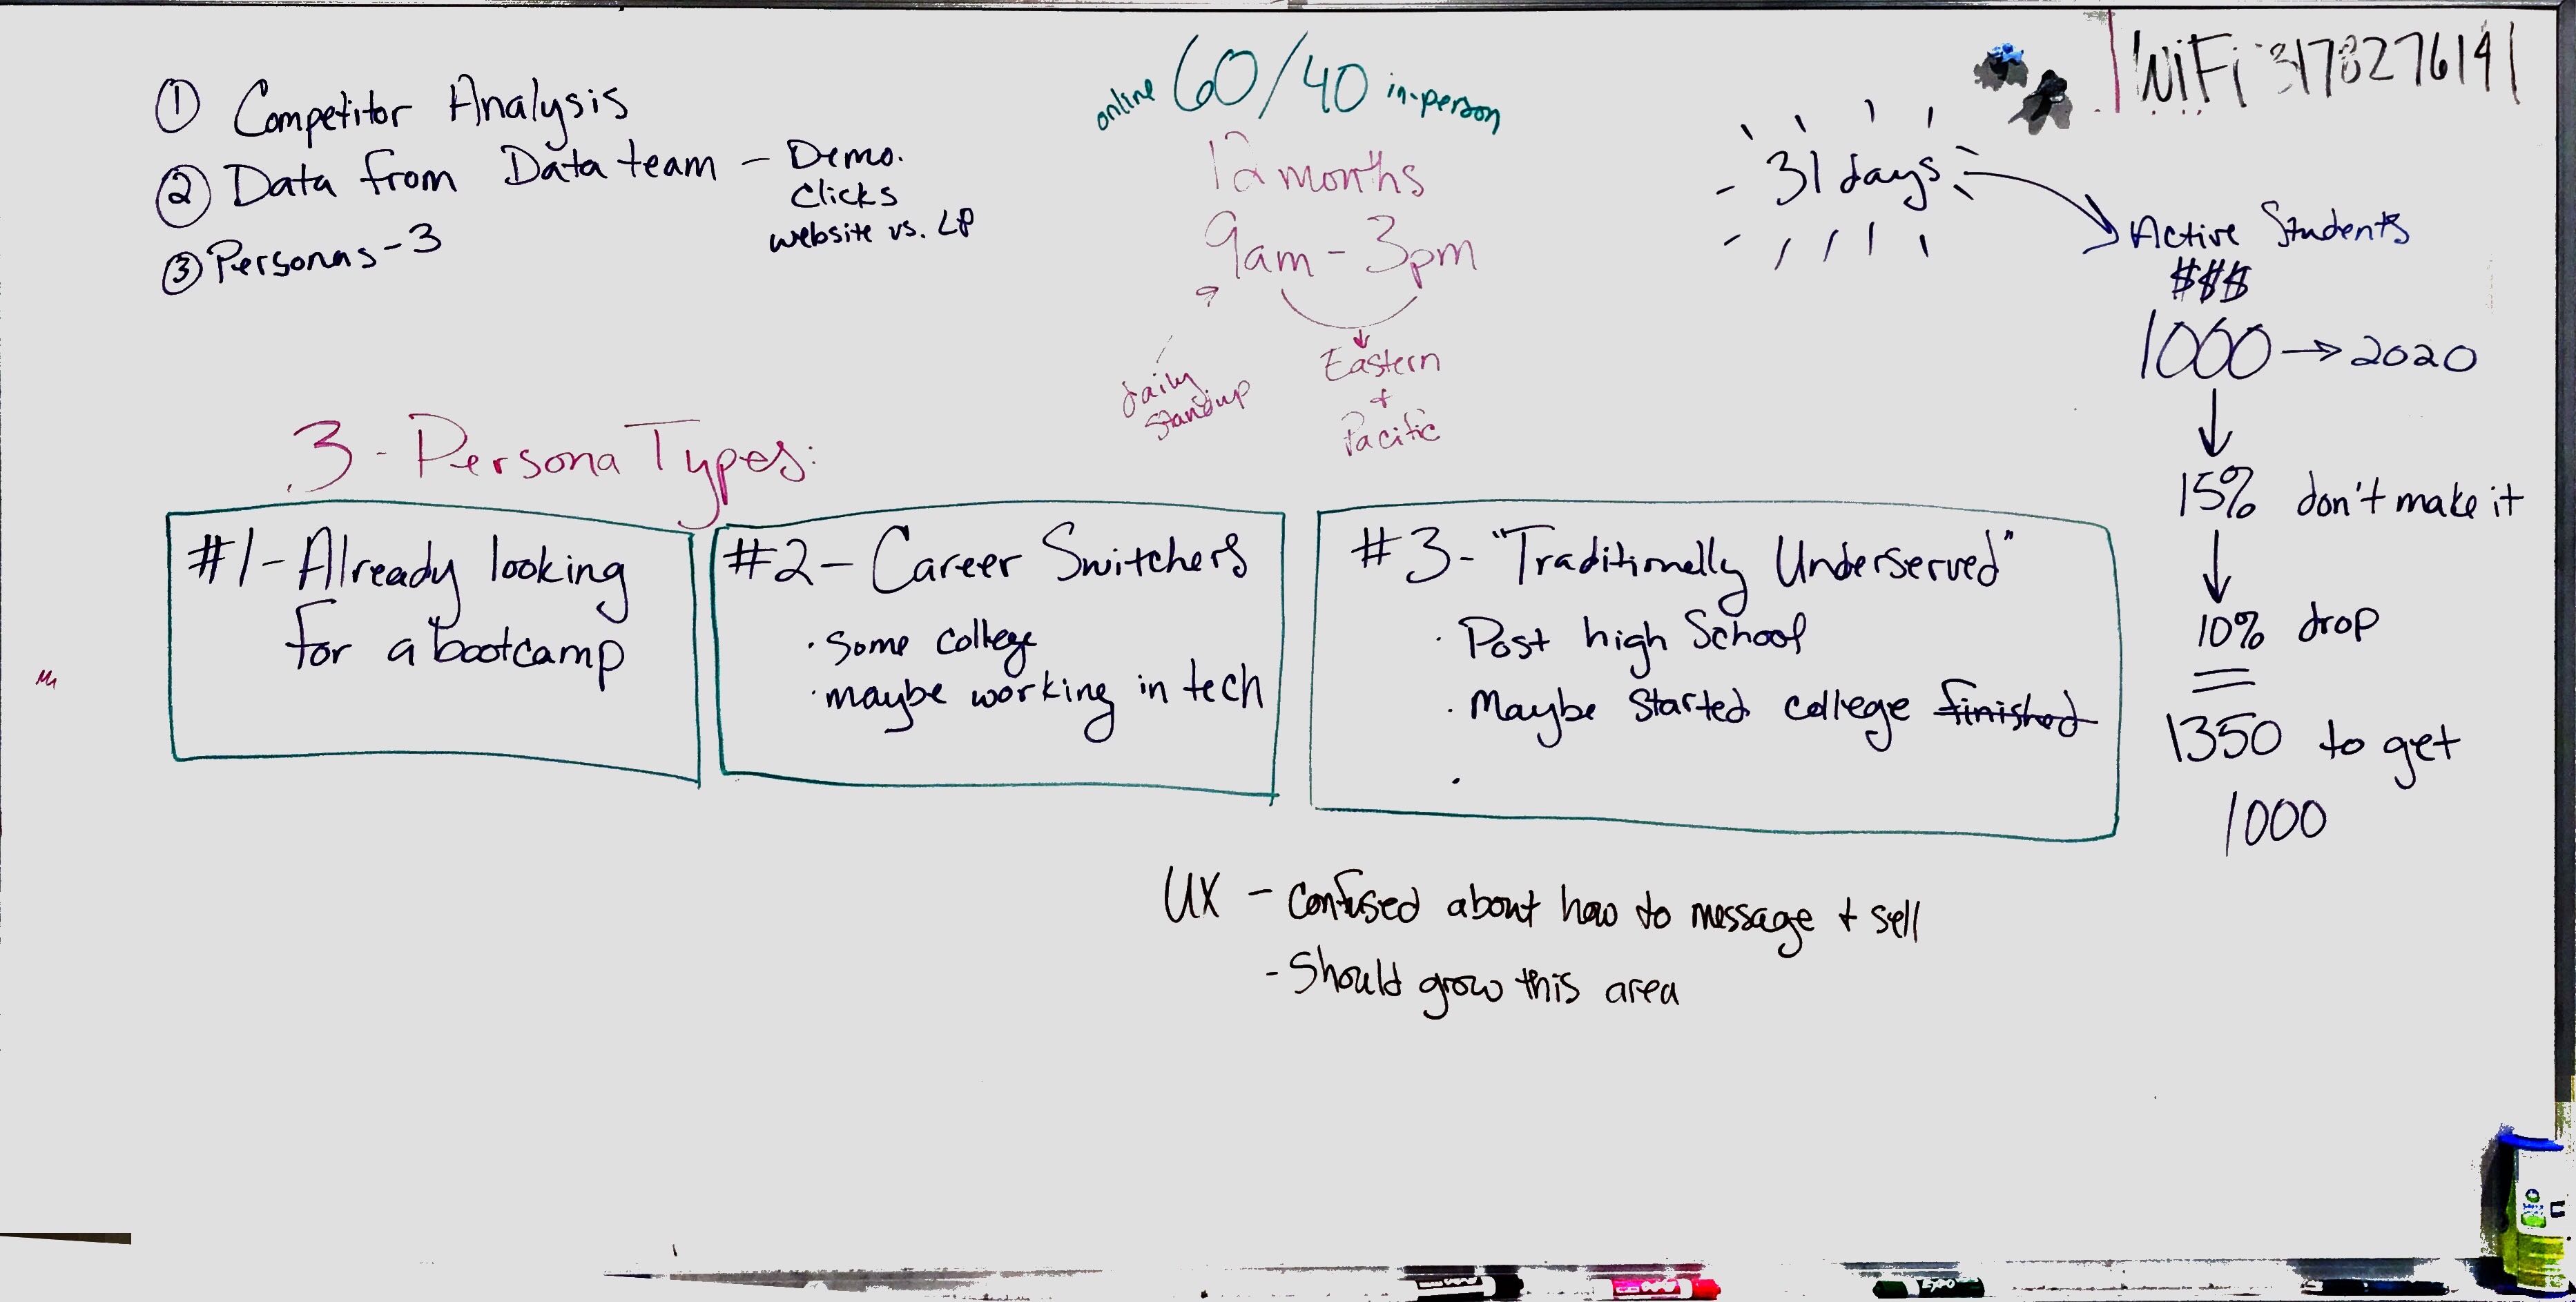 ① Competitor Analysis
② Data from Data team - Demo.
Clicks
website vs. LP
③ Personas - 3
online 60/40 in-person
12 months
9am - 3pm
daily
standup
Eastern
+
Pacific
WiFi 3178276141
31 days
Active Students
$$$
1000 → 2020
15% don't make it
10% drop
=
1350 to get
1000
3 - Persona Types:
#1 - Already looking
for a bootcamp
#2 - Career Switchers
· Some college
· maybe working in tech
#3 - "Traditionally Underserved"
· Post high School
· Maybe Started college finished
·
UX - Confused about how to message + sell
- Should grow this area
EXPO